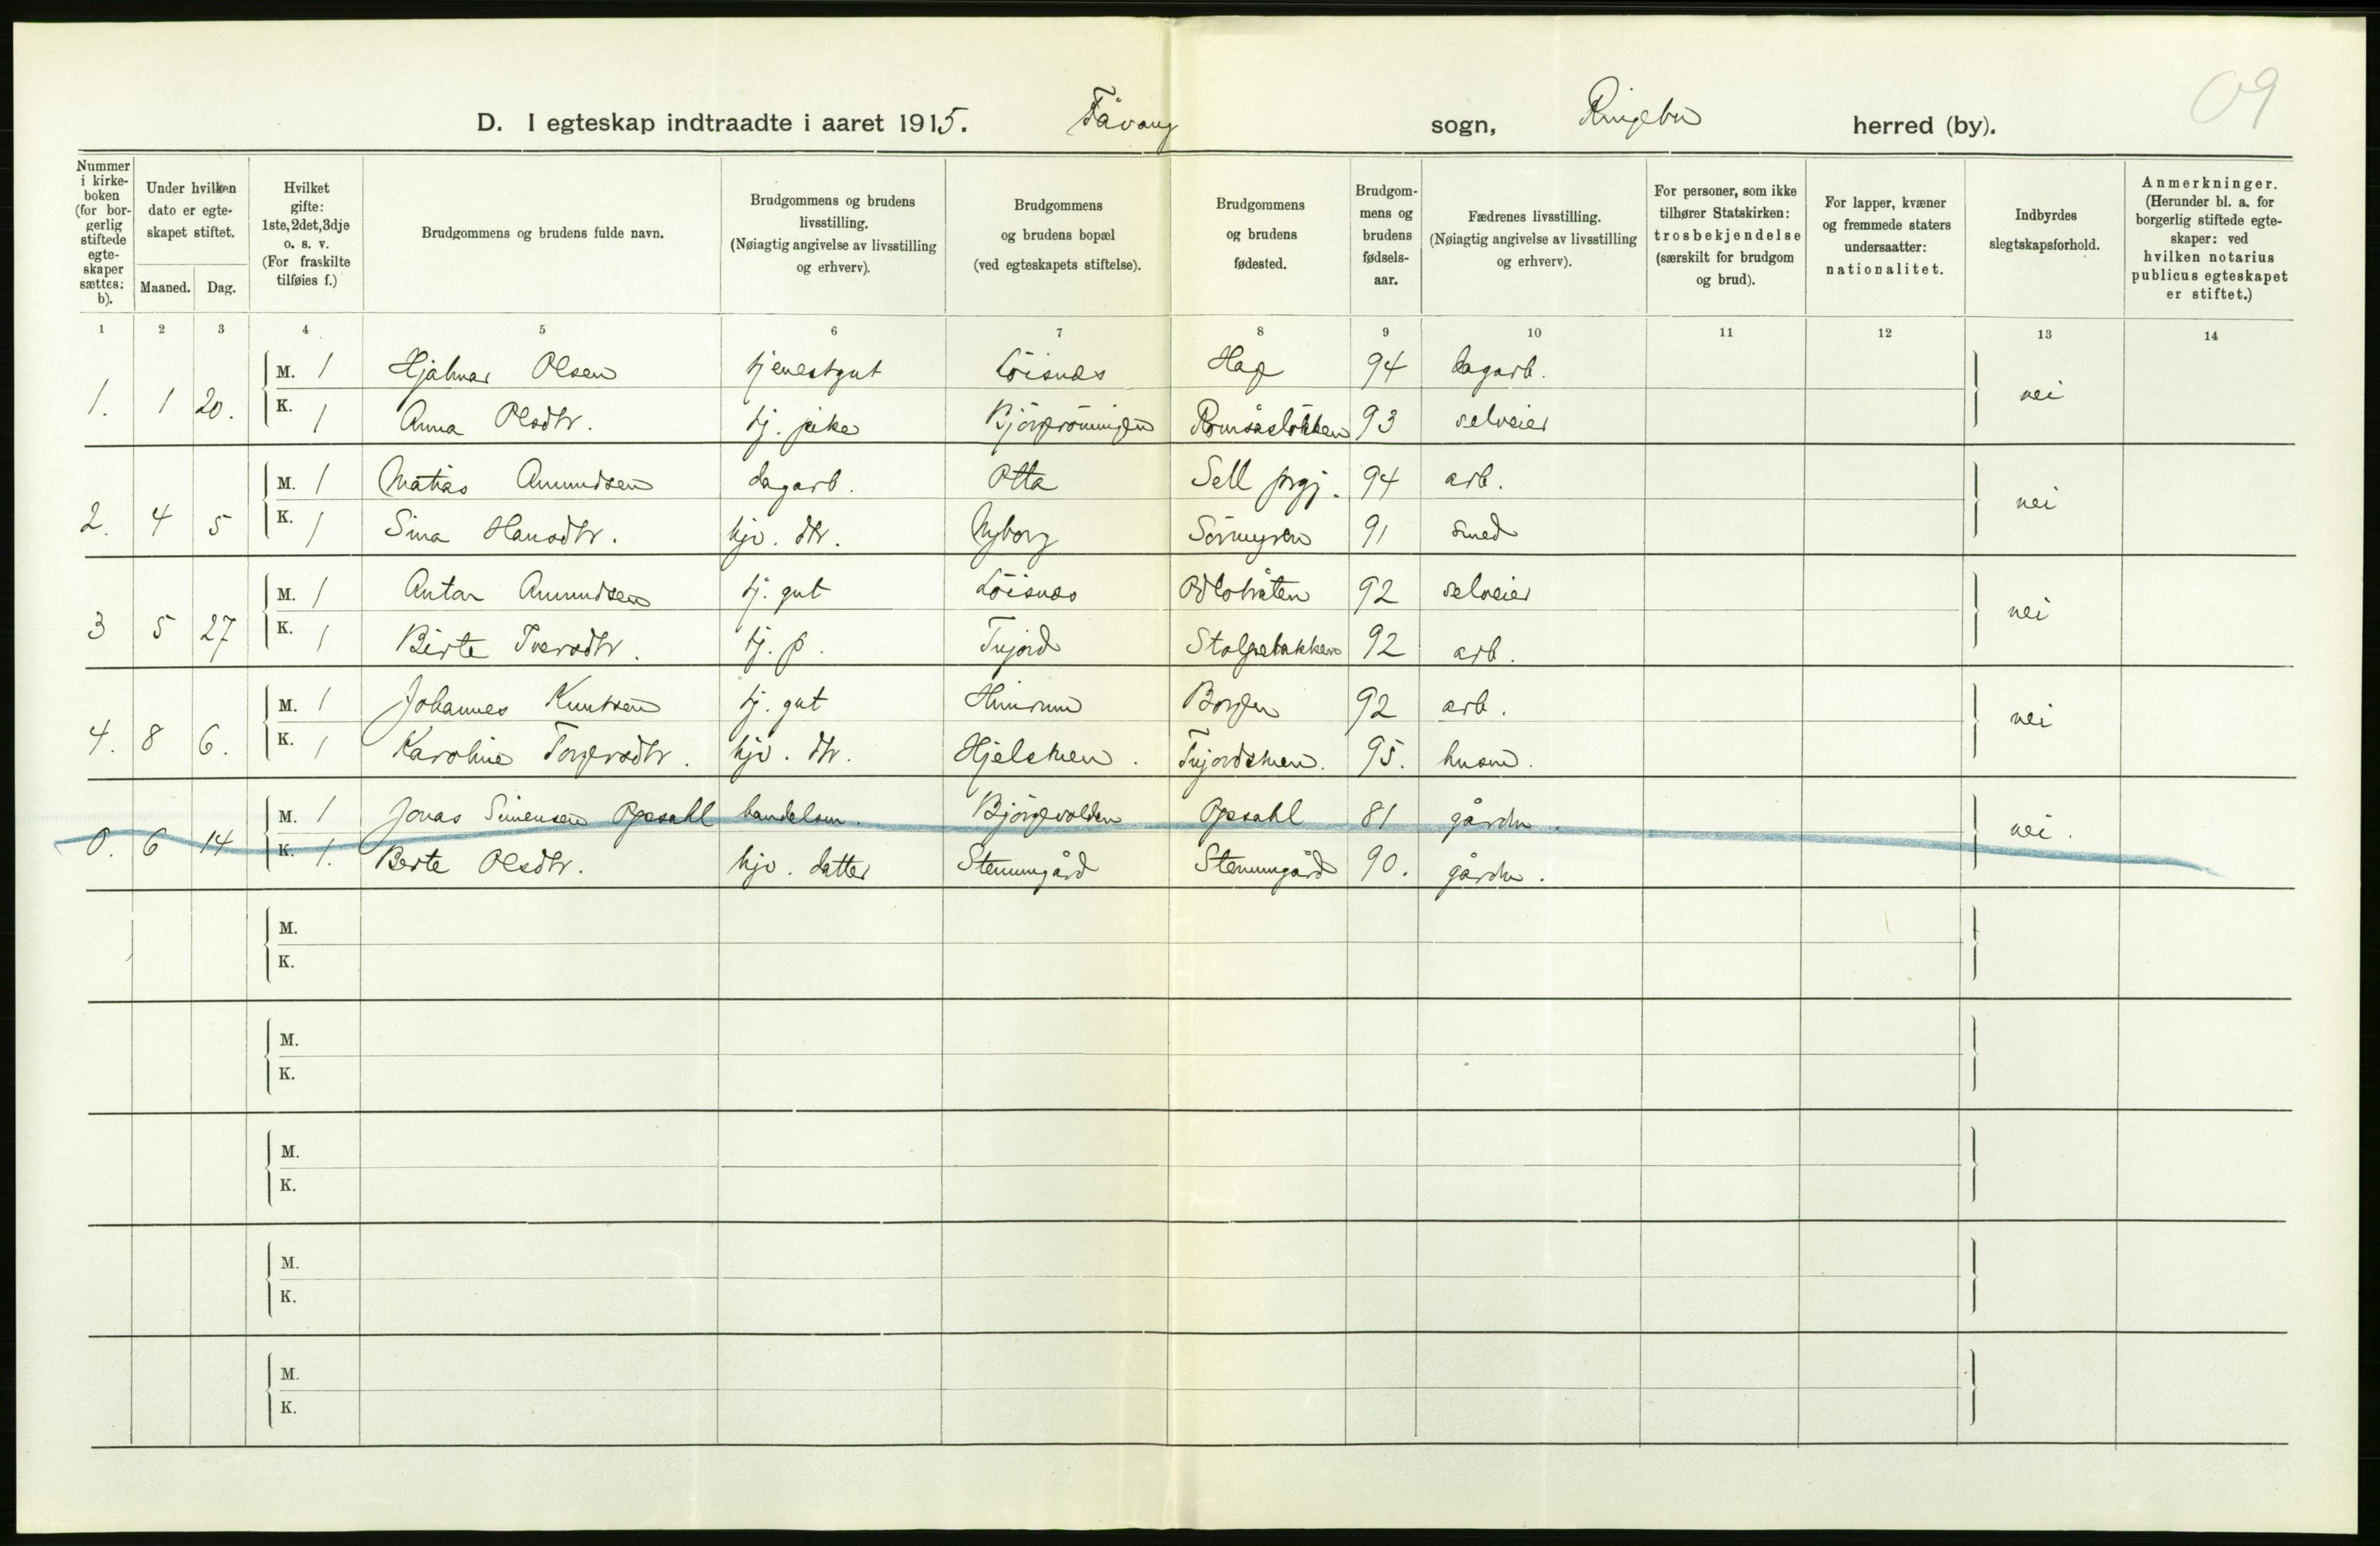 09
D. I egteskap indtraadte i aaret 1915. Fåvang sogn, Ringebu herred (by).
Nummer i kirkeboken (for borgerlig stiftede egteskaper sættes: b).
Under hvilken dato er egteskapet stiftet.
Maaned. Dag.
Hvilket gifte: 1ste, 2det, 3dje o. s. v. (For fraskilte tilføies f.)
Brudgommens og brudens fulde navn.
Brudgommens og brudens livsstilling. (Nøiagtig angivelse av livsstilling og erhverv).
Brudgommens og brudens bopæl (ved egteskapets stiftelse).
Brudgommens og brudens fødested.
Brudgommens og brudens fødselsaar.
Fædrenes livsstilling. (Nøiagtig angivelse av livsstilling og erhverv).
For personer, som ikke tilhører Statskirken: trosbekjendelse (særskilt for brudgom og brud).
For lapper, kvæner og fremmede staters undersaatter: nationalitet.
Indbyrdes slegtskapsforhold.
Anmerkninger. (Herunder bl. a. for borgerlig stiftede egteskaper: ved hvilken notarius publicus egteskapet er stiftet.)
1 2 3 4 5 6 7 8 9 10 11 12 13 14
M. 1 Hjalmar Olsen tjenestgut Löisnes Hag 94 dagarb.
1. 1 20. nei
K. 1 Anna Olsdtr. tj. pike Romsåslökken 93 selveier
M. 1 Matias Amundsen dagarb. Otta Sell prgj. 94 arb.
2. 4 5 nei
K. 1 Sina Hansdtr. hjv. dtr. Nyborg Sörmyren 91 smed
M. 1 Anton Amundsen tj. gut Löisnes 92 selveier
3 5 27 nei
K. 1 Birte Iversdtr. tj. p. Tujord Stolpebakken 92 arb.
M. 1 Johannes Knutsen tj. gut Borgen 92 arb.
4. 8 6. nei
K. 1 Karoline Torgersdtr. hjv. dtr. Hjelstuen. Tujordstuen. 95. husm.
M. 1 Jonas Simensen Opsahl handelsm. Björgevolden Opsahl 81 gårdbr.
0. 6 14 nei.
K. 1. Berte Olsdtr. hjv. datter Stenumgård Stenumgård 90. gårdbr.
M.
K.
M.
K.
M.
K.
M.
K.
M.
K.